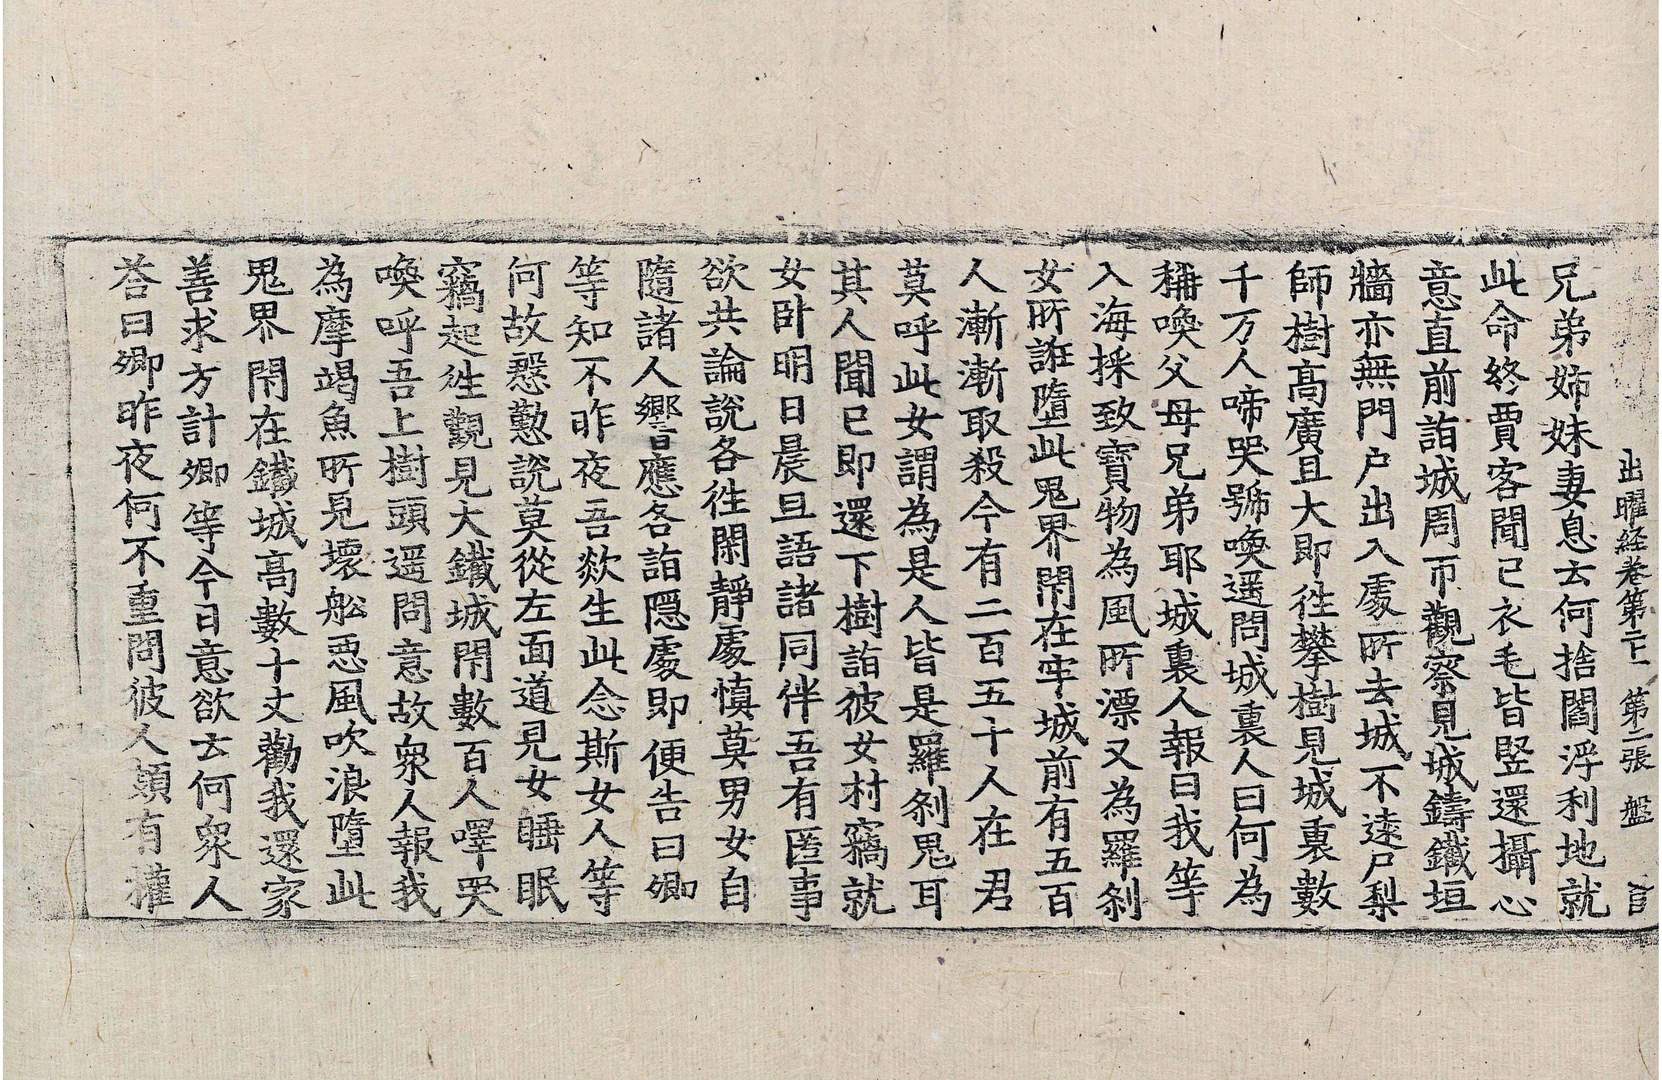 出曜経卷第二十一 第二張 盤
兄弟姊妹妻息云何捨閻浮利地就
此命終賈客聞已衣毛皆竪還攝心
意直前詣城周帀觀察見城鑄鐵垣
牆亦無門戶出入處所去城不遠尸梨
師樹高廣且大即往攀樹見城裏數
千万人啼哭號喚遥問城裏人曰何為
稱喚父母兄弟耶城裏人報曰我等
入海採致寶物為風所漂又為羅刹
女所誑墮此鬼界閇在牢城前有五百
人漸漸取殺今有二百五十人在君
莫呼此女謂為是人皆是羅刹鬼耳
其人聞已即還下樹詣彼女村竊就
女卧明日晨旦語諸同伴吾有匿事
欲共論說各往閑靜處慎莫男女自
隨諸人響應各詣隱處即便告曰卿
等知不昨夜吾欻生此念斯女人等
何故慇懃說莫從左面道見女睡眠
竊起往觀見大鐵城閇數百人嘷哭
喚呼吾上樹頭遥問意故衆人報我
為摩竭魚所見壞舩惡風吹浪墮此
鬼界閇在鐵城高數十丈勸我還家
善求方計卿等今日意欲云何衆人
荅曰卿昨夜何不重問彼人頗有權